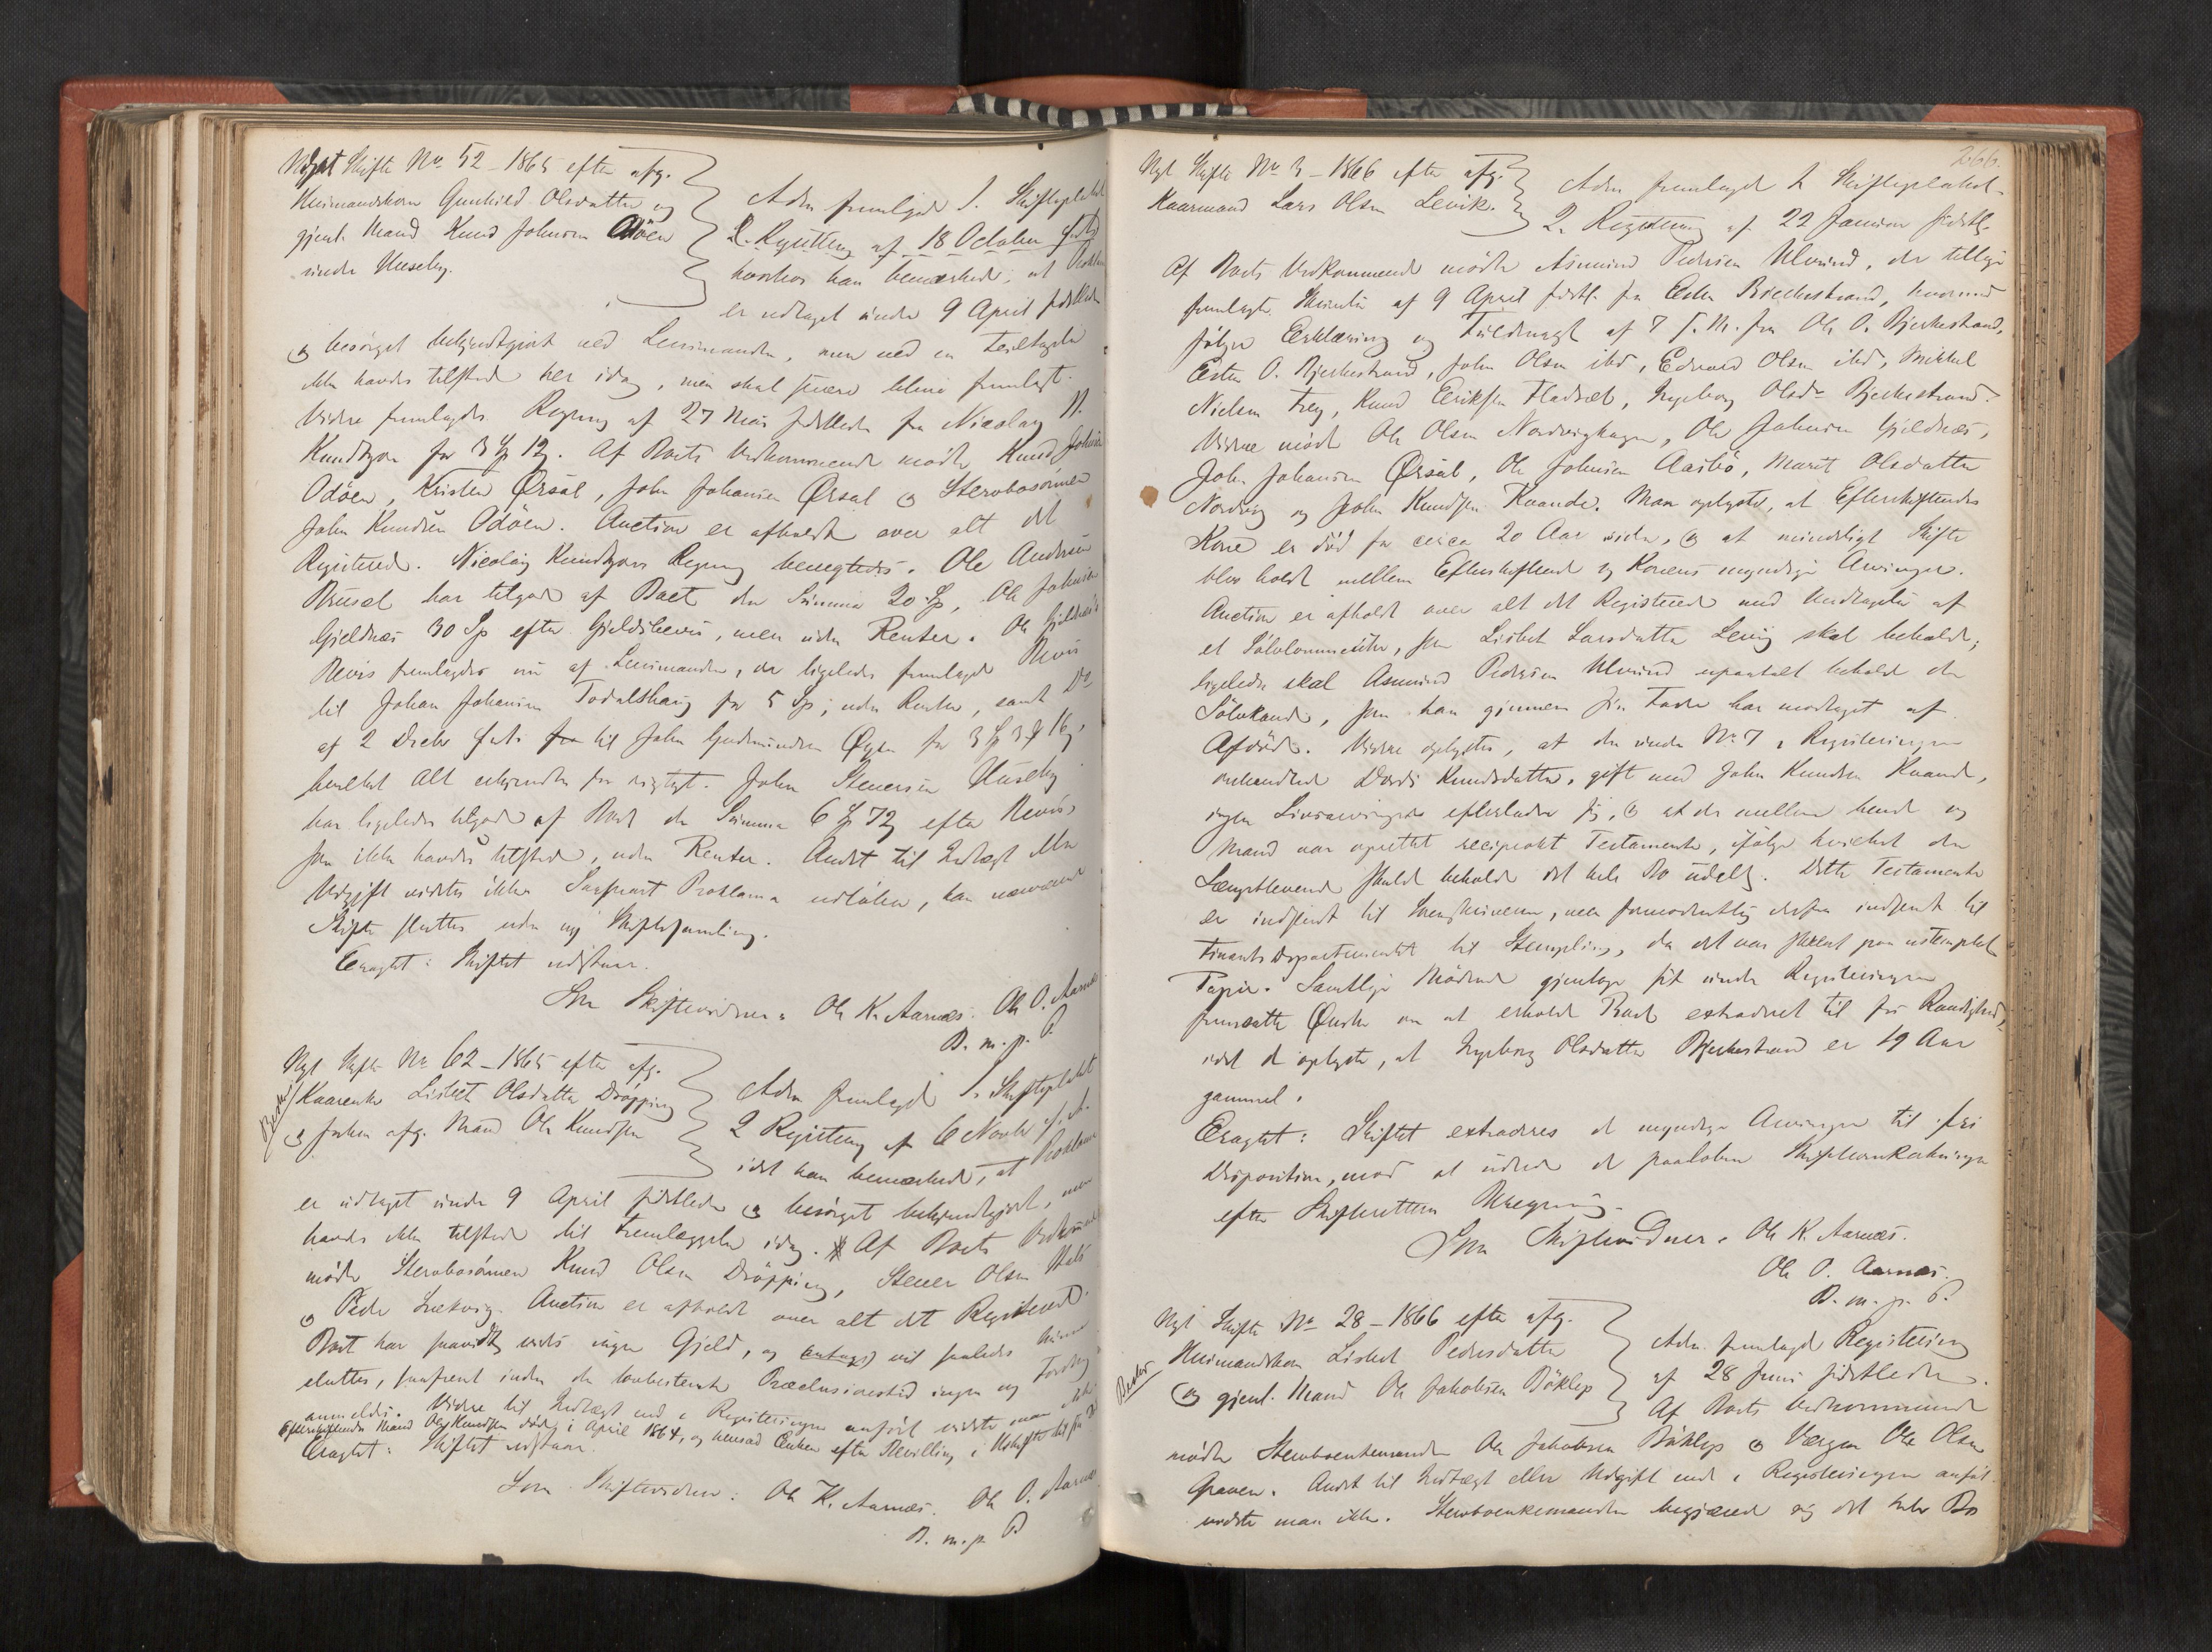 Nyt Skifte No 52 - 1865 efter afg.
Huusmandskone Gunhild Olsdatter og
gjenl. Mand Knud Johnsen Ödöen
under Huseby.
Adm fremlagde 1. Skifteplakat
2. Registering af 18 October f. A.
hvorhos han bemærkede, at Proklam
er udtaget under 9 April sidstleden
og besörget bekjendtgjort ved Lensmanden, men ved en Feiltagelse
ikke havdes tilstede her idag, men skal senere blive fremlagt.
Videre fremlagdes Regning af 27 Mai sidstleden fra Nicolay H.
Knudtzon for 3 Sp 12 s. Af Boets Vedkommende mödte Knud Johnsen
Ödöen, Kristen Ørsal, John Johansen Ørsal og Stervbosönnen
John Knudsen Ödöen. Auction er afholdt over alt det
Registerede. Nicolay Knudtzons Regning benegtedes. Ole Andersen
Bruset har tilgode af Boet den Summa 20 Sp, Ole Johnsen
Gjeldnæs 30 Sp efter Gjeldsbevis, men uden Renter. Ole Gjeldnæs's
Bevis fremlagdes nu af Lensmanden, der ligeledes fremlagde Bevis
til Johan Johansen Todalshaug for 5 Sp, uden Renter, samt Do
af 2 Decbr f. A. fra til John Gudmundsen Øyen for 3 Sp 3 16 s,
hvilket Alt erkjendtes for rigtigt. John Steuersen Huseby
har ligeledes tilgode af Boet den Summa 6 Sp 72 s efter Bevis,
som ikke havdes tilstede, uden Renter. Andet til Indtægt eller
Udgift vidstes ikke. Saasnart Proklama udlöber, kan nærværende
Skifte sluttes uden ny Skiftesamling.
Eragtet: Skiftet udstaar.
Som Skiftevidner: Ole K. Aarnæs. Ole O. Aarnæs
B. m. p. P.
Nyt Skifte No 62 - 1865 efter afg.
Kaarenke Lisbet Olsdatter Dröpping
og forhen afg. Mand Ole Knudsen
Adm fremlagde 1. Skifteplakat
2 Registering af 6 Novbr f. A.
idet han bemærkede, at Proklama
er udtaget under 9 April sidstleden og besörget bekjendtgjort, men
havdes ikke tilstede til Fremlæggelse idag. Af Boets Vedkommende
mödte Stervbosönnen Knud Olsen Dröpping, Steuer Olsen
og Peder Snekvig. Auction er afholdt over alt det Registerede.
Boet har saavidt vides ingen Gjeld, og antages vil saaledes kunne
sluttes, saafremt inden den lovbestemte Præclusionstid ingen ny Fordring
anmeldes. Videre til Indtægt end i Registeringen anfört vidste man ikke.
Efterskiftendes Mand Ole Knudsen döde i April 1864, og hensad Enken efter Bevilling i Uskiftet Bo
Eragtet: Skiftet udstaar.
Som Skiftevidner: Ole K. Aarnæs. Ole O. Aarnæs
B. m. p. P
266.
Nyt Skifte No 3 - 1866 efter afg.
Kaarmand Lars Olsen Levik.
Adm fremlagde 1. Skifteplakat
2. Registering af 22 Januar sidstl.
Af Boets Vedkommende mödte Asmund Pedersen Ulvund, der tillige
fremlagte Skrivelse af 9 April sidstl. fra Esten Bjerkestrand, hvormed
fölger Erklæring og Fuldmagt af 7 s. M. fra Ole O. Bjerkestrand,
Esten O. Bjerkestrand, John Olsen ibd, Edvard Olsen ibd, Mikkel
Nielsen Frey, Knud Eriksen Fladsæt, Ingeborg Olsdr Bjerkestrand.
Videre mödte Ole Olsen Nordvighagen, Ole Johnsen Gjeldnæs,
John Johansen Ørsal, Ole Johnsen Aasbö, Marit Olsdatter
Nordvig og John Knudsen Kvande. Man oplyste, at Efterskiftendes
Kone er död for circa 20 Aar siden, og at mindeligt Skifte
blev holdt mellem Efterskiftende og Konens myndige Arvinger.
Auction er afholdt over alt det Registerede med Undtagelse af
et Sölvlommeuhr, som Lisbet Larsdatter Levig skal beholde;
ligeledes skal Asmund Pedersen Ulvund upaatalt beholde den
Sölvkande, som han gjennem sin Fader har modtaget af
Afdöde. Videre oplystes, at den under No 7 i Registeringen
omhandlede Dordi Knudsdatter, gift med John Knudsen Kvande,
ingen Livsarvinger efterlader sig, og at der mellem hende og
Mand var oprettet reciprokt Testamente, ifölge hvilket den
Længstlevende skulde beholde det hele Bo udelt. Dette Testamente
er indsendt til Sorenskriveren, men formodentlig derfra indsendt til
Finants Departementet til Stempling, da det var skrevet paa ustemplet
Papir. Samtlige Mödende gjentoge sit under Registeringen
fremsatte Ønske om at erholde Boet extraderet til fri Raadighed,
idet de oplyste, at Ingeborg Olsdatter Bjerkestrand er 19 Aar
gammel.
Eragtet: Skiftet extraderes de myndige Arvinger til fri
Disposition, mod at udrede de paalöbne Skifteomkostninger
efter Skifterettens Beregning.
Som Skiftevidner: Ole K. Aarnæs.
Ole O. Aarnæs.
B. m. p. P.
Nyt Skifte No 28 - 1866 efter afg.
Huusmandskone Lisbet Pedersdatter
og gjenl. Mand Ole Jakobsen Böklep
Adm. fremlagde Registering
af 28 Juni sidstleden.
Af Boets Vedkommende
mödte Stervboenkemanden Ole Jakobsen Böklep og Værgen Ole Olsen
Graven. Andet til Indtægt eller Udgift end i Registeringen anfört
vidste man ikke. Stervboenkemanden begjærede sig det hele Bo